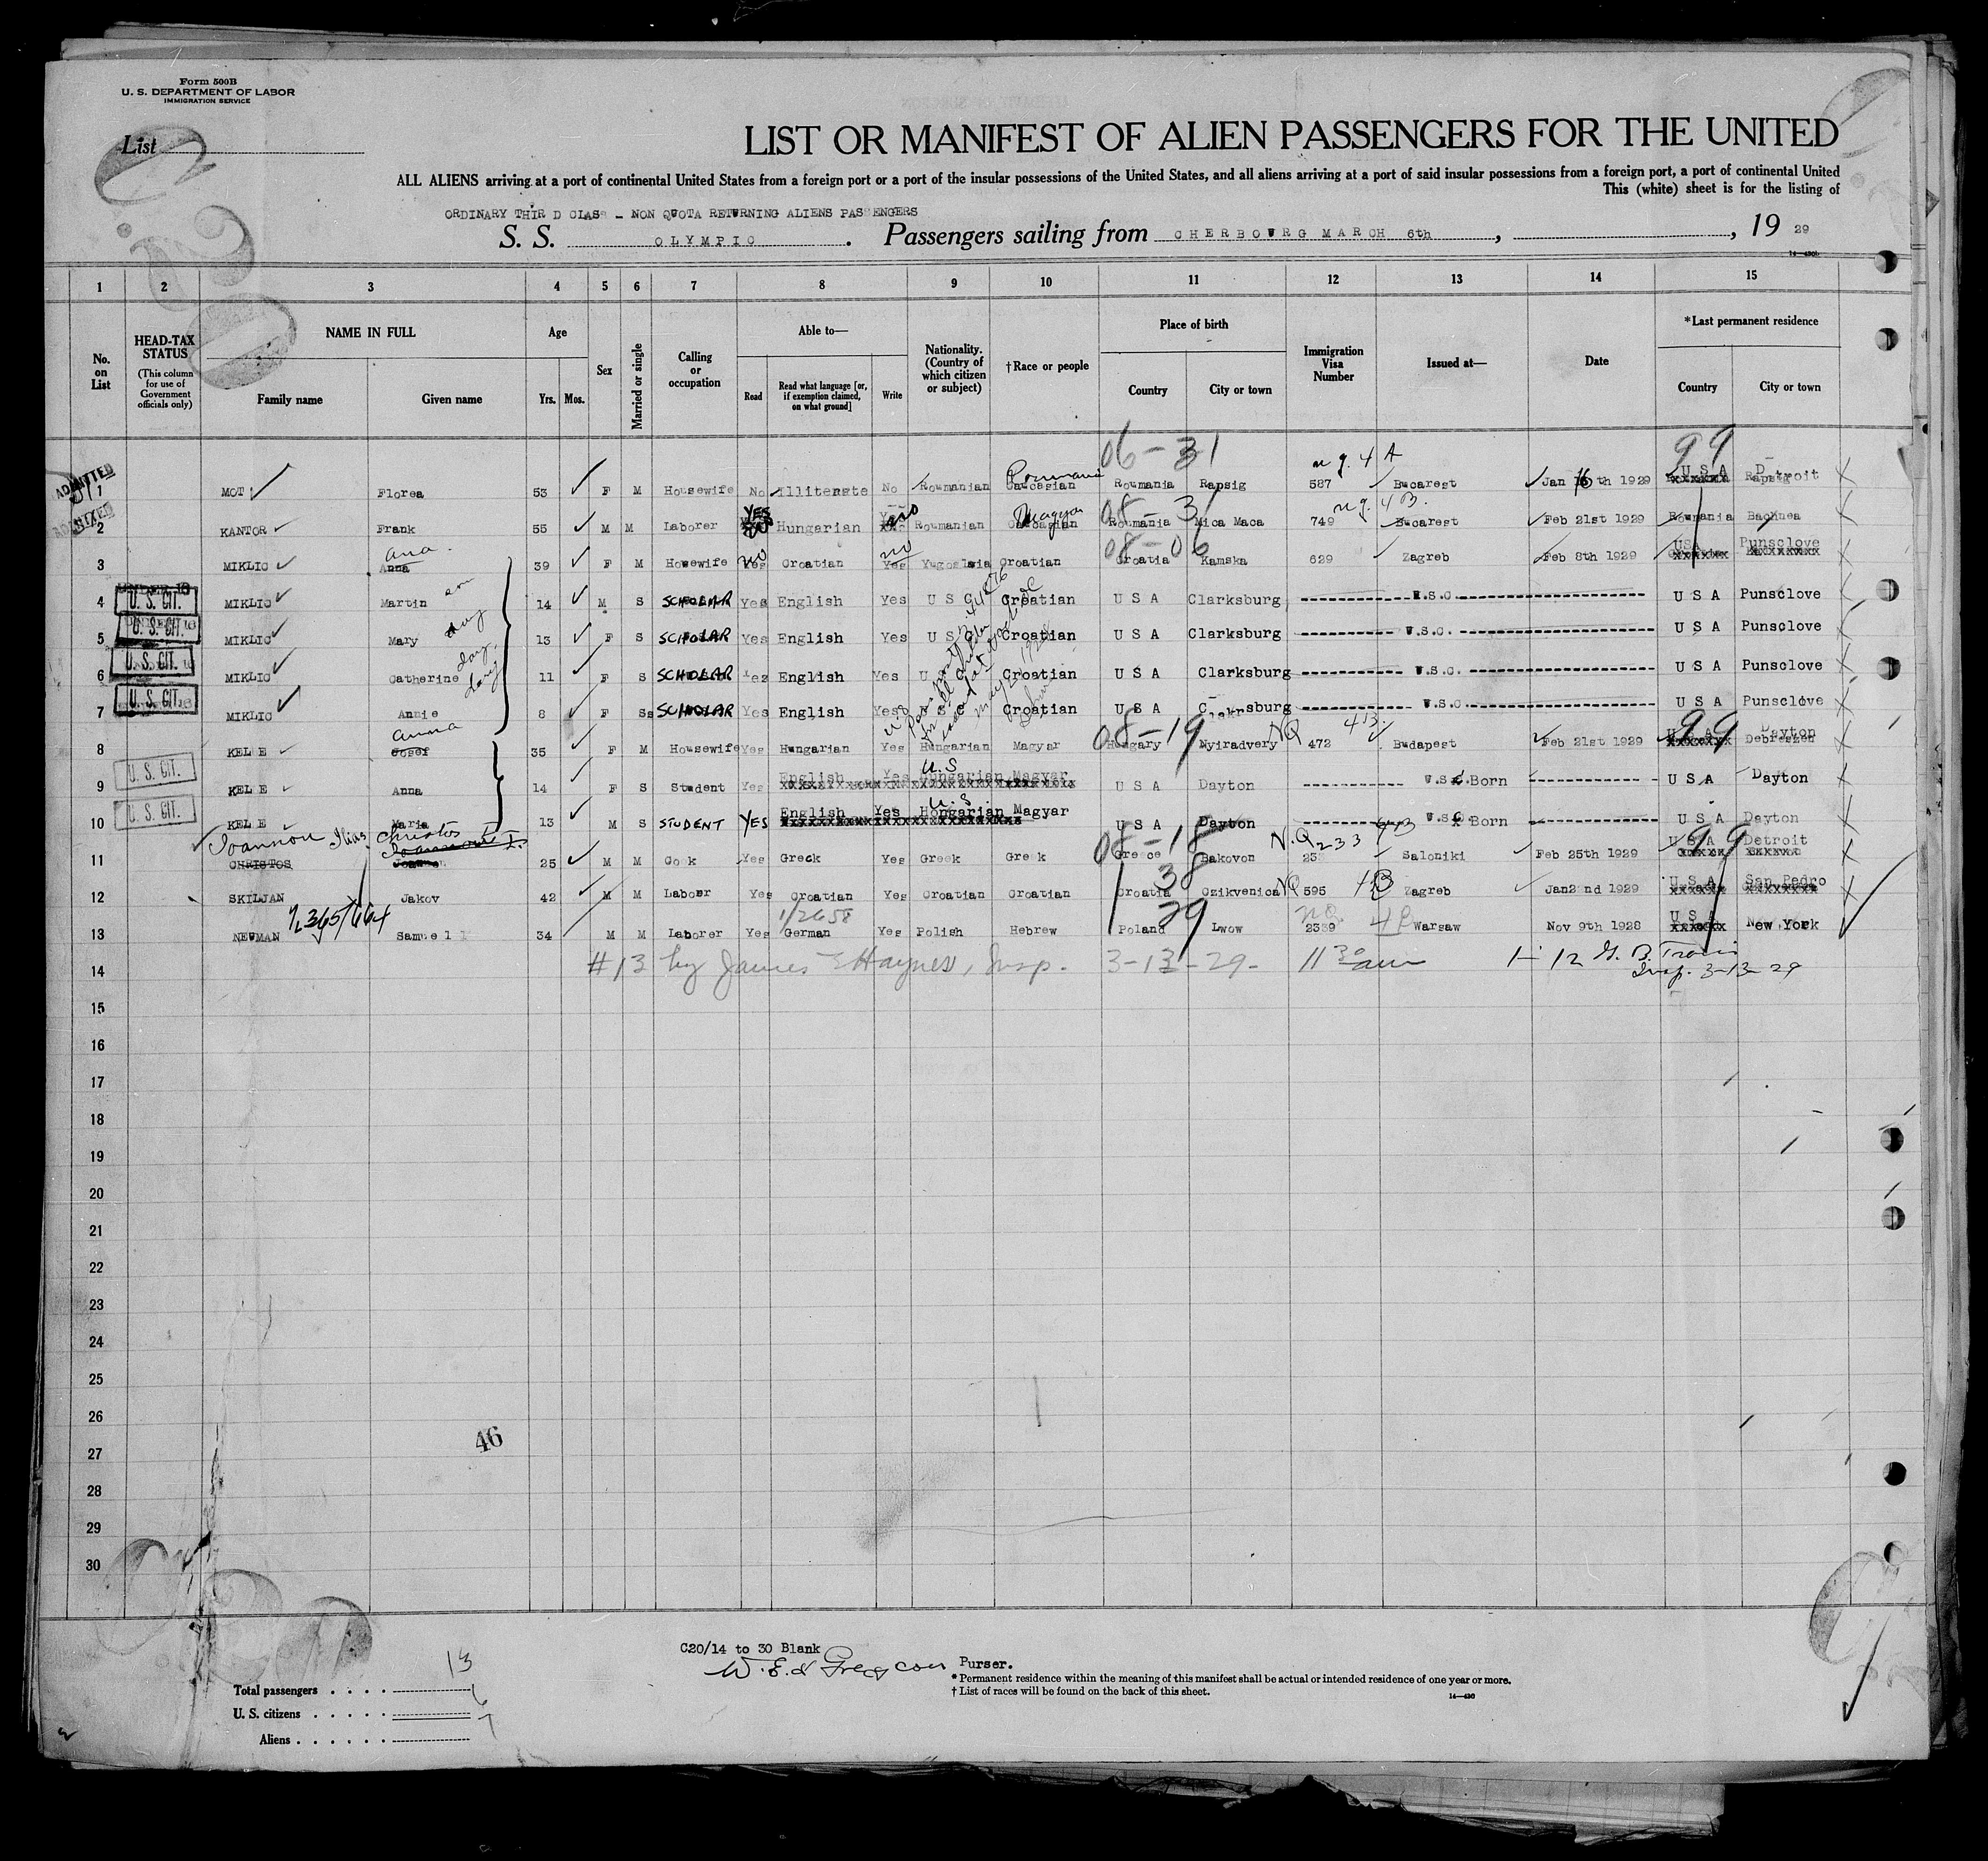 Form 500B
U. S. DEPARTMENT OF LABOR
IMMIGRATION SERVICE
List
LIST OR MANIFEST OF ALIEN PASSENGERS FOR THE UNITED
ALL ALIENS arriving at a port of continental United States from a foreign port or a port of the insular possessions of the United States, and all aliens arriving at a port of said insular possessions from a foreign port, a port of continental United
This (white) sheet is for the listing of
ORDINARY THIR D CLASS - NON QUOTA RETURNING ALIENS PASSENGERS
S. S. OLYMPIC. Passengers sailing from CHERBOURG MARCH 6th, , 19 29
1 2 3 4 5 6 7 8 9 10 11 12 13 14 15
No. on List
HEAD-TAX STATUS (This column for use of Government officials only)
NAME IN FULL
Family name Given name
Age
Yrs. Mos.
Sex
Married or single
Calling or occupation
Able to—
Read
Read what language [or, if exemption claimed, on what ground]
Write
Nationality. (Country of which citizen or subject)
†Race or people
Place of birth
Country City or town
Immigration Visa Number
Issued at—
Date
*Last permanent residence
Country City or town
06-31 n q. 4 A 99
ADMITTED 1 MOT Florea 53 F M Housewife No Illiterate No Roumanian Caucasian Roumania Rapsig 587 Bucarest Jan 16 th 1929 U S A Detroit
08-31 n q. 4 B.
2 KANTOR Frank 55 M M Laborer YES Hungarian no Roumanian Caucasian Magyar Roumania Mica Maca 749 Bucarest Feb 21st 1929 Roumania Bachnea
08-06
3 MIKLIC Anna Ana. 39 F M Housewife no Yes Croatian no Yes Yugoslavia Croatian Croatia Kamska 629 Zagreb Feb 8th 1929 USA Punsclove
4 U. S. CIT. MIKLIC Martin son 14 M S SCHOLAR Yes English Yes U S C Croatian U S A Clarksburg U.S.C. U S A Punsclove
5 U. S. CIT. MIKLIC Mary dau 13 F S SCHOLAR Yes English Yes U S C Croatian U S A Clarksburg U.S.C. U S A Punsclove
6 U. S. CIT. MIKLIC Catherine dau 11 F S SCHOLAR Yes English Yes U S Croatian U S A Clarksburg U.S.C. U S A Punsclove
7 U. S. CIT. MIKLIC Annie dau 8 F S SCHOLAR Yes English Yes U S Croatian U S A Clarksburg U.S.C U S A Punsclove
08-19 NQ 4B 99
8 KELE Josef Anna 35 F M Housewife Yes Hungarian Yes Hungarian Magyar Hungary Nyiradvery 472 Budapest Feb 21st 1929 U S A Dayton Debreszen
9 U. S. CIT. KELE Anna 14 F S Student Yes English Yes U.S Hungarian Magyar U S A Dayton U.S. Born U S A Dayton
10 U. S. CIT. KELE Maria 13 M S STUDENT YES English Yes U.S. Hongarian Magyar U S A Dayton U.S. Born U S A Dayton
Joannou Ilias Christos
08-18 N.Q 233 4B 99
11 CHRISTOS 25 M M Cook Yes Greck Yes Greek Greek Greece Bakovon Saloniki Feb 25th 1929 U S A Detroit
12 SKILJAN Jakov 42 M M Laboer Yes Croatian Yes Croatian Croatian Croatia Czikvenica NQ 595 4B Zagreb Jan2 nd 1929 U S A San Pedro
38
29 1/2658
13 NEUMAN Samuel 34 M M Laborer Yes German Yes Polish Hebrew Poland Lwow 2359 Warsaw Nov 9th 1928 U S A New York
14 #13 by James E Haynes, Insp. 3-13-29- 11 30 am 1-12
Insp. 3-13-29
15
16
17
18
19
20
21
22
23
24
25
26
27
28
29
30
46
C20/14 to 30 Blank
Purser.
*Permanent residence within the meaning of this manifest shall be actual or intended residence of one year or more.
†List of races will be found on the back of this sheet.
Total passengers . . . . 13
U. S. citizens . . . . . 6
Aliens . . . . . . 7